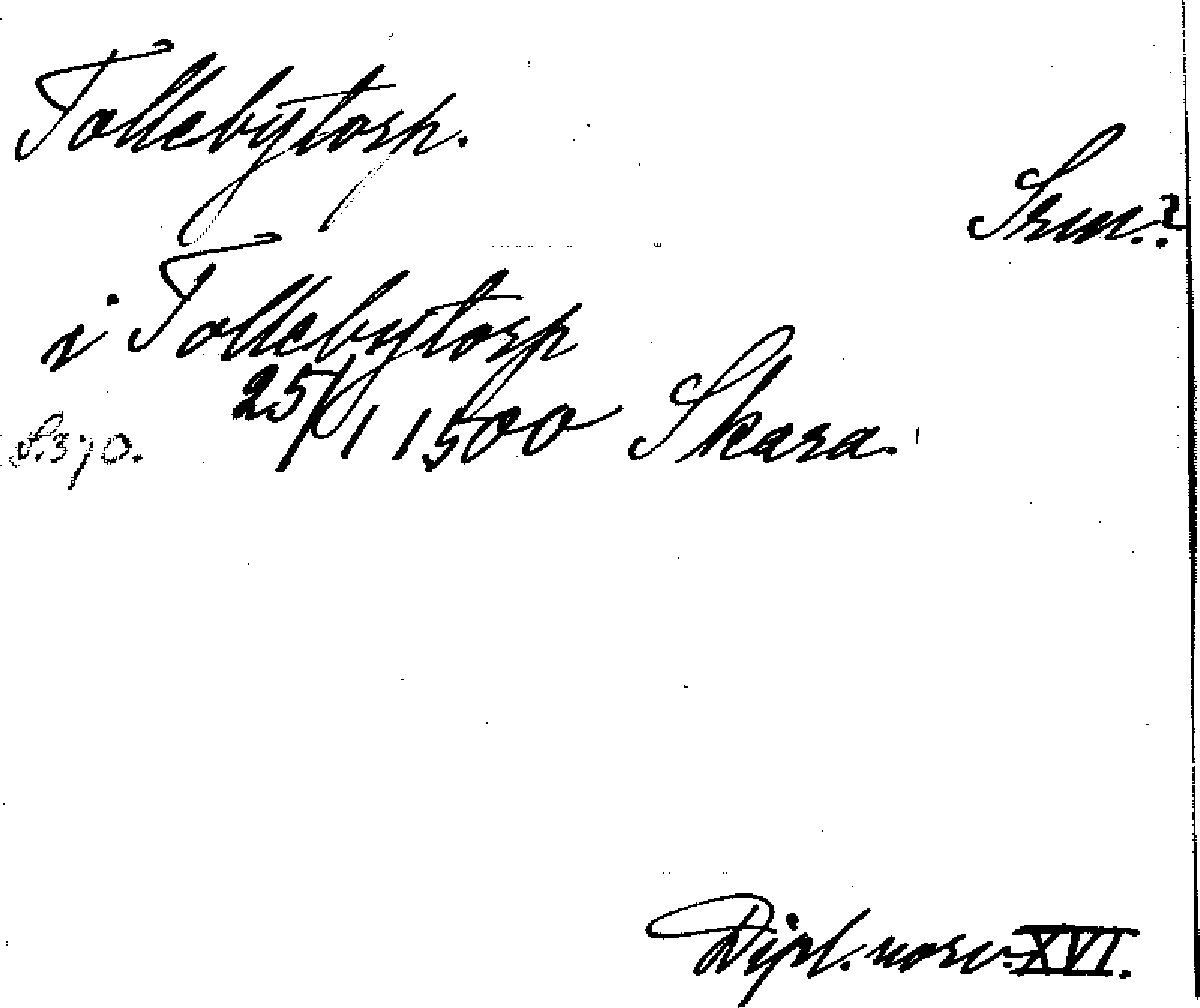 Tollebytorp.
Srm.?
i Tollebytorp
25/1 1500 Skara.
S. 370.
Dipl. norv. XVI.